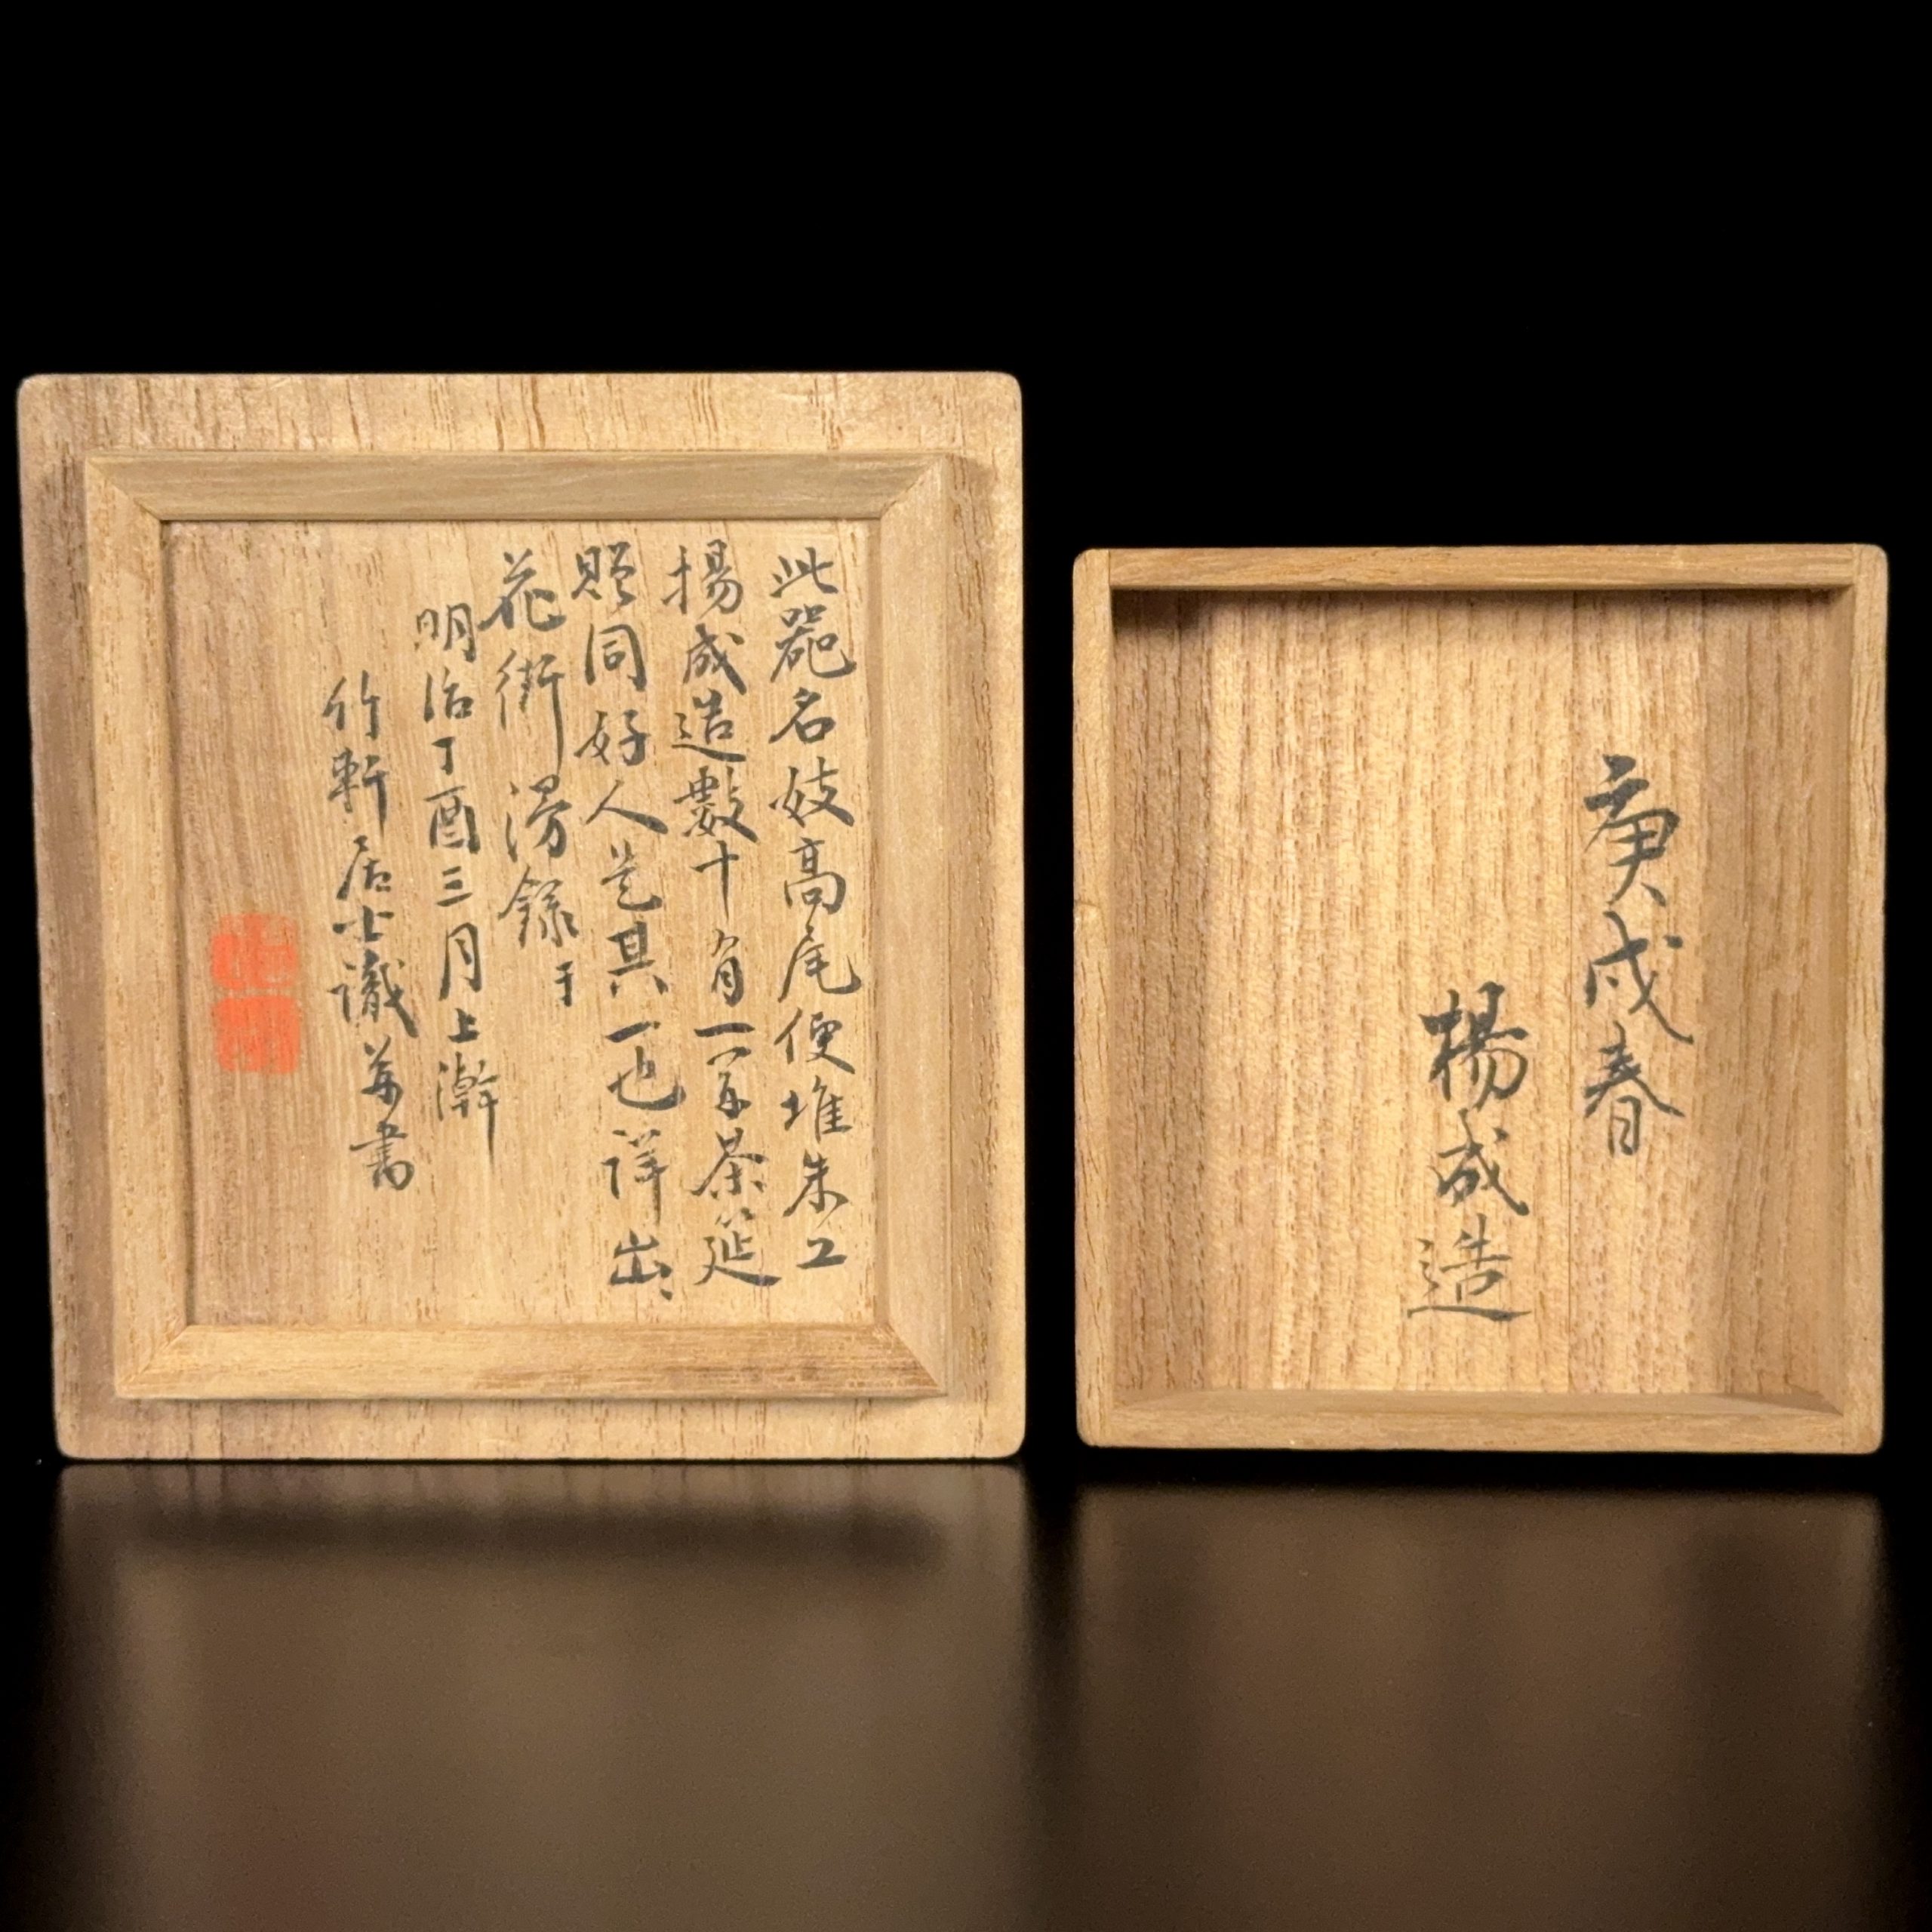 此器名妓高尾使堆朱工
揚成造數十有一具茶筵
贈同好人是其一也詳出
花街漫錄于
明治丁酉三月上澣
竹軒居士識并書
庚戌春
楊成造